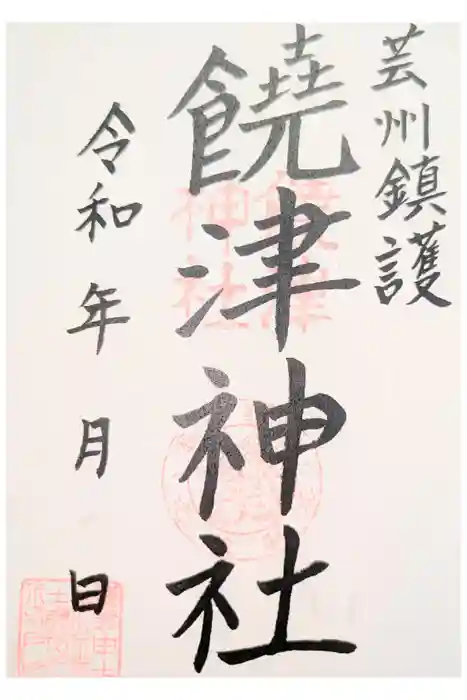 芸州鎮護
饒津神社
令和 年 月 日
饒津
神社